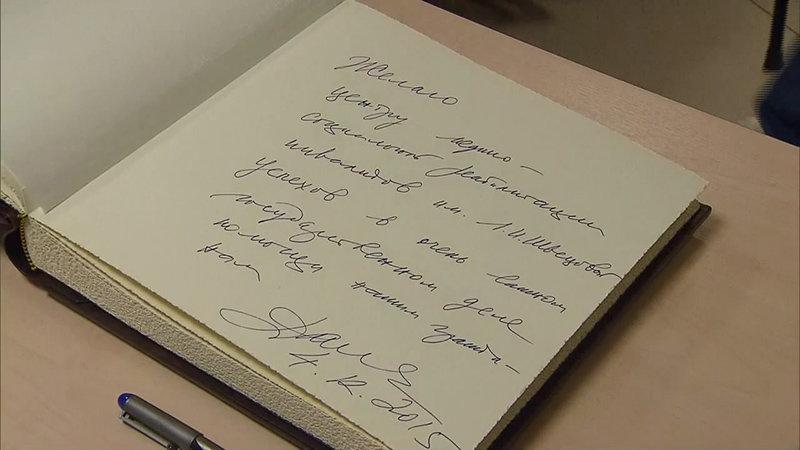 Желаю
центру медико-
социальной реабилитации
инвалидов им. Л.И.Швецовой
успехов в очень важном
государственном деле
помощи нашим гражда-
нам
4.12.2015